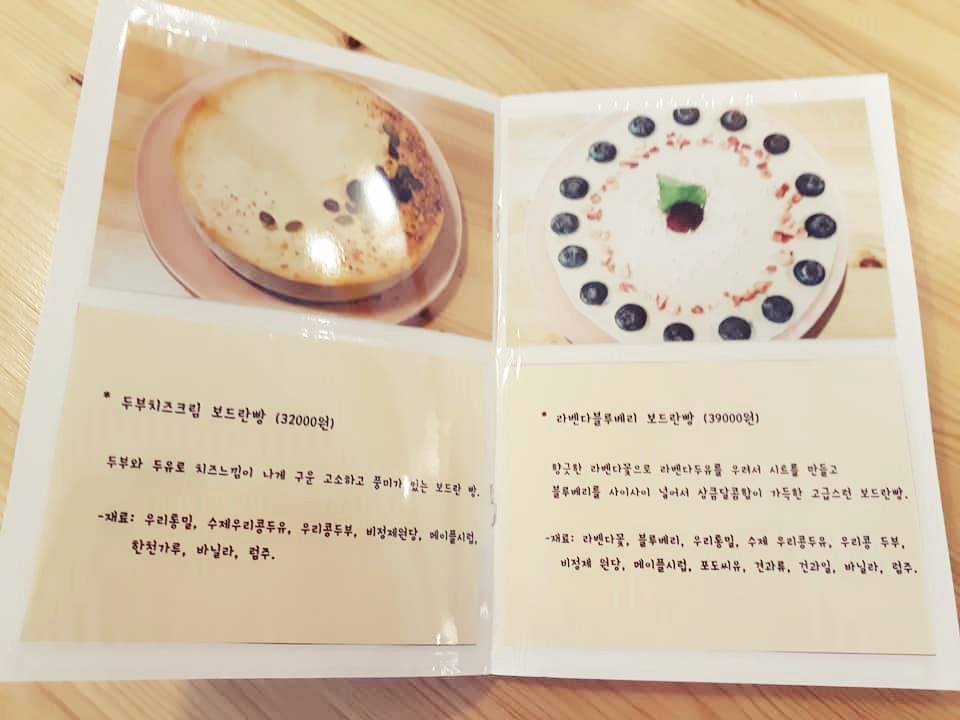 * 두부치즈크림 보드란빵 (32000원)
두부와 두유로 치즈느낌이 나게 구운 고소하고 풍미가 있는 보드란 빵.
-재료: 우리통밀, 수제우리콩두유, 우리콩두부, 비정제원당, 메이플시럽,
한천가루, 바닐라, 럼주.
* 라벤다블루베리 보드란빵 (39000원)
향긋한 라벤다꽃으로 라벤다두유를 우려서 시트를 만들고
블루베리를 사이사이 넣어서 상큼달콤함이 가득한 고급스런 보드란빵.
-재료: 라벤다꽃, 블루베리, 우리통밀, 수제 우리콩두유, 우리콩 두부,
비정제 원당, 메이플시럽, 포도씨유, 견과류, 건과일, 바닐라, 럼주.